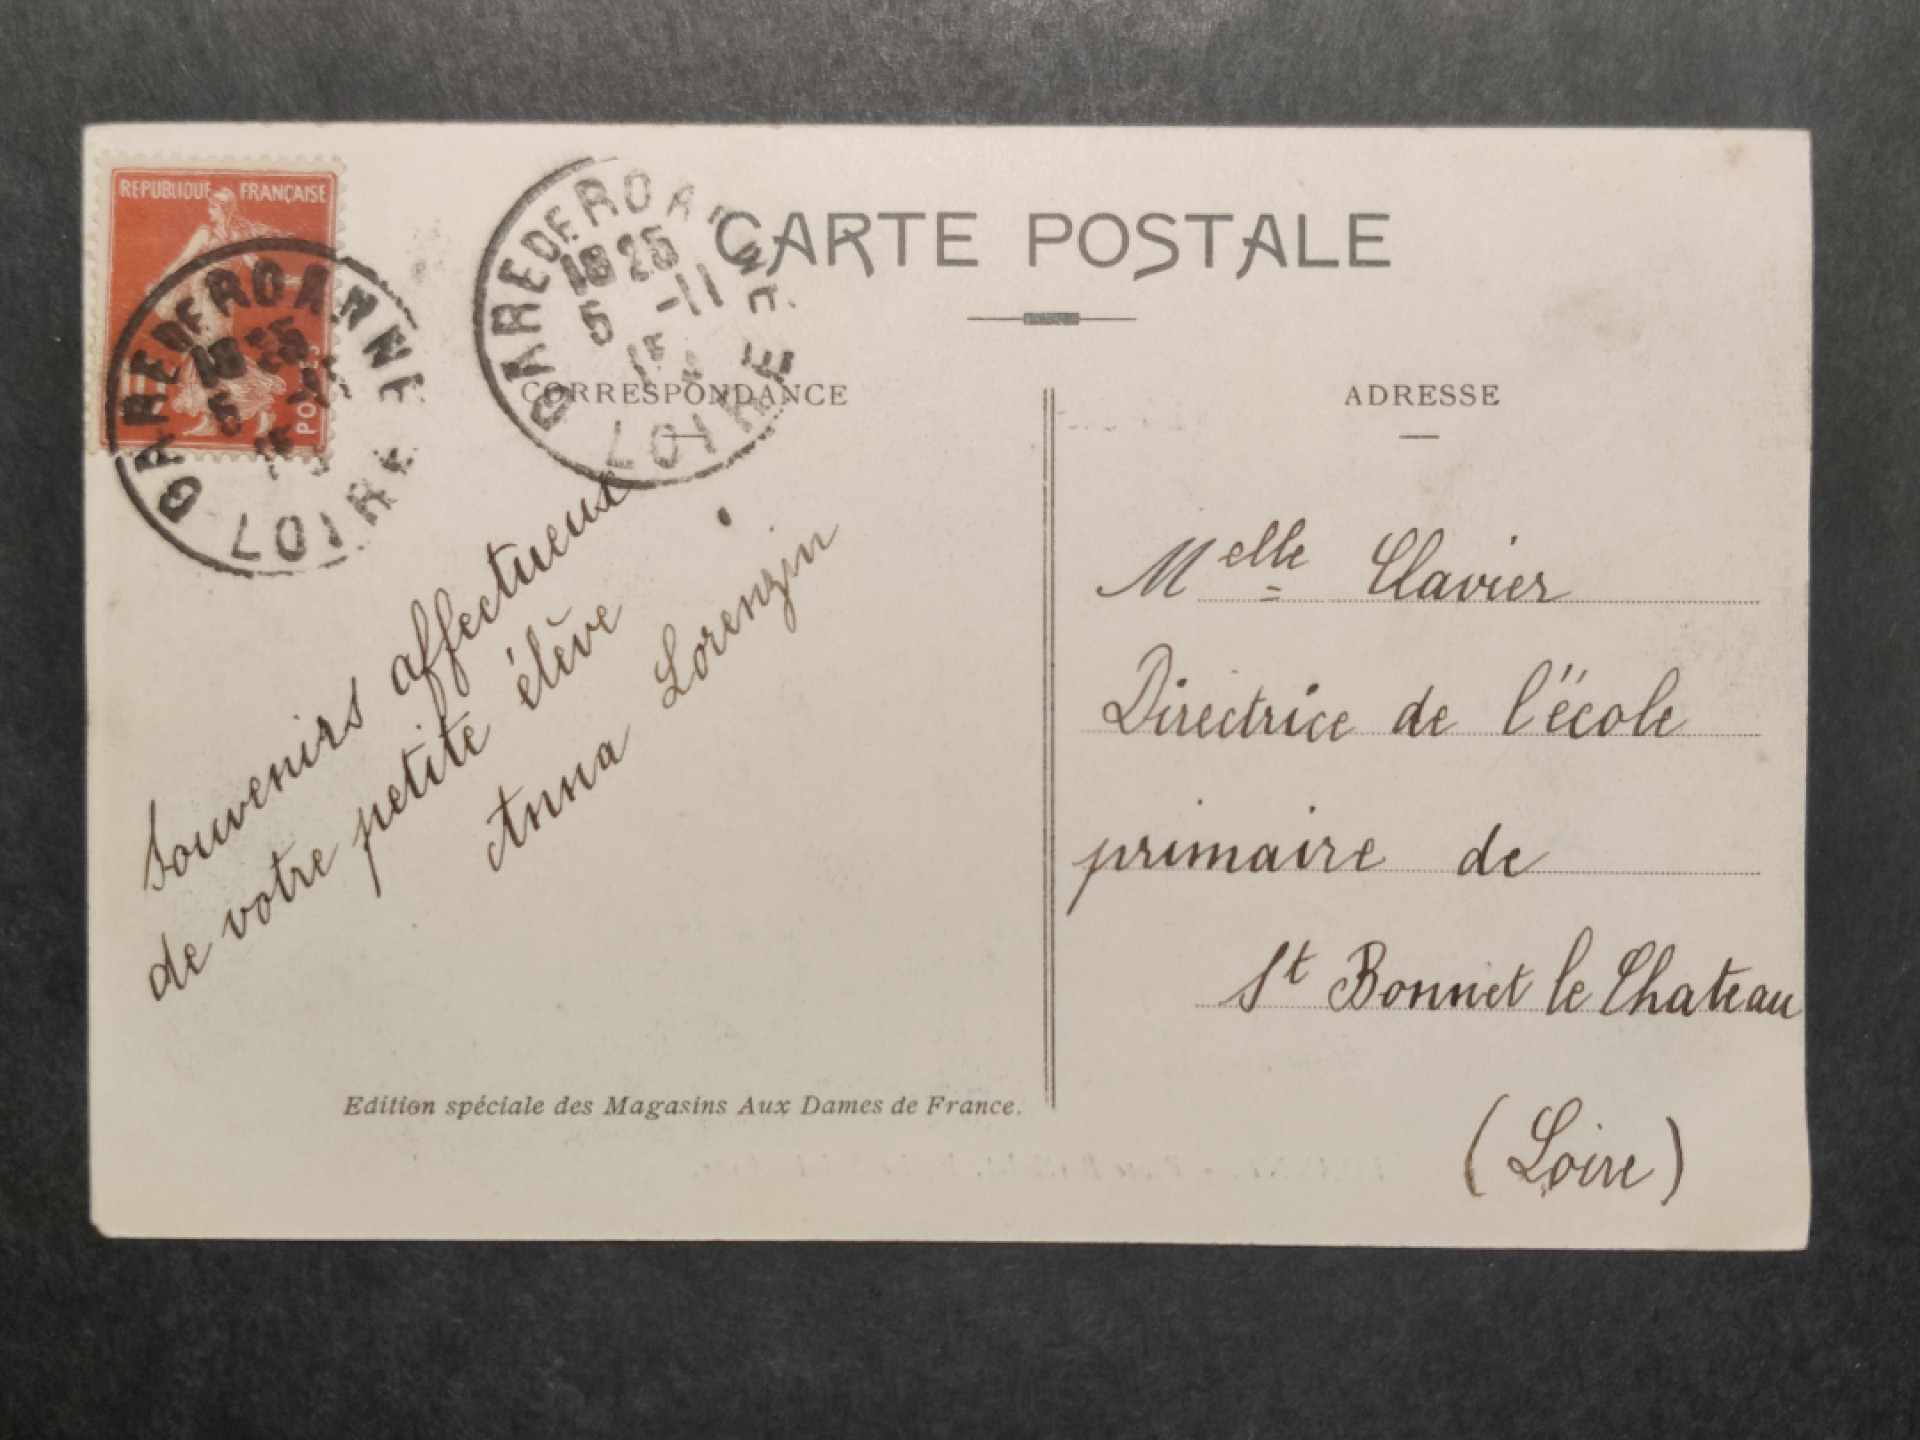 REPUBLIQUE FRANÇAISE
POSTES
GARE DE ROANNE
18 25
5
LOIRE
GARE DE ROANNE
18 25
5 - 11
LOIRE
CARTE POSTALE
CORRESPONDANCE
ADRESSE
Souvenirs affectueux
de votre petite élève
Anna Lorenzin
Edition spéciale des Magasins Aux Dames de France.
Melle Clavier
Directrice de l'école
primaire de
St Bonnet le Chateau
(Loire)